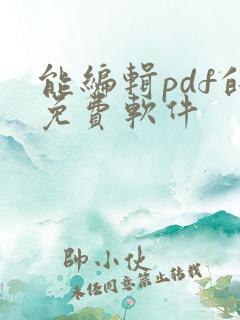 能編輯pdf的
免費軟件
帥小伙
未經同意禁止轉載